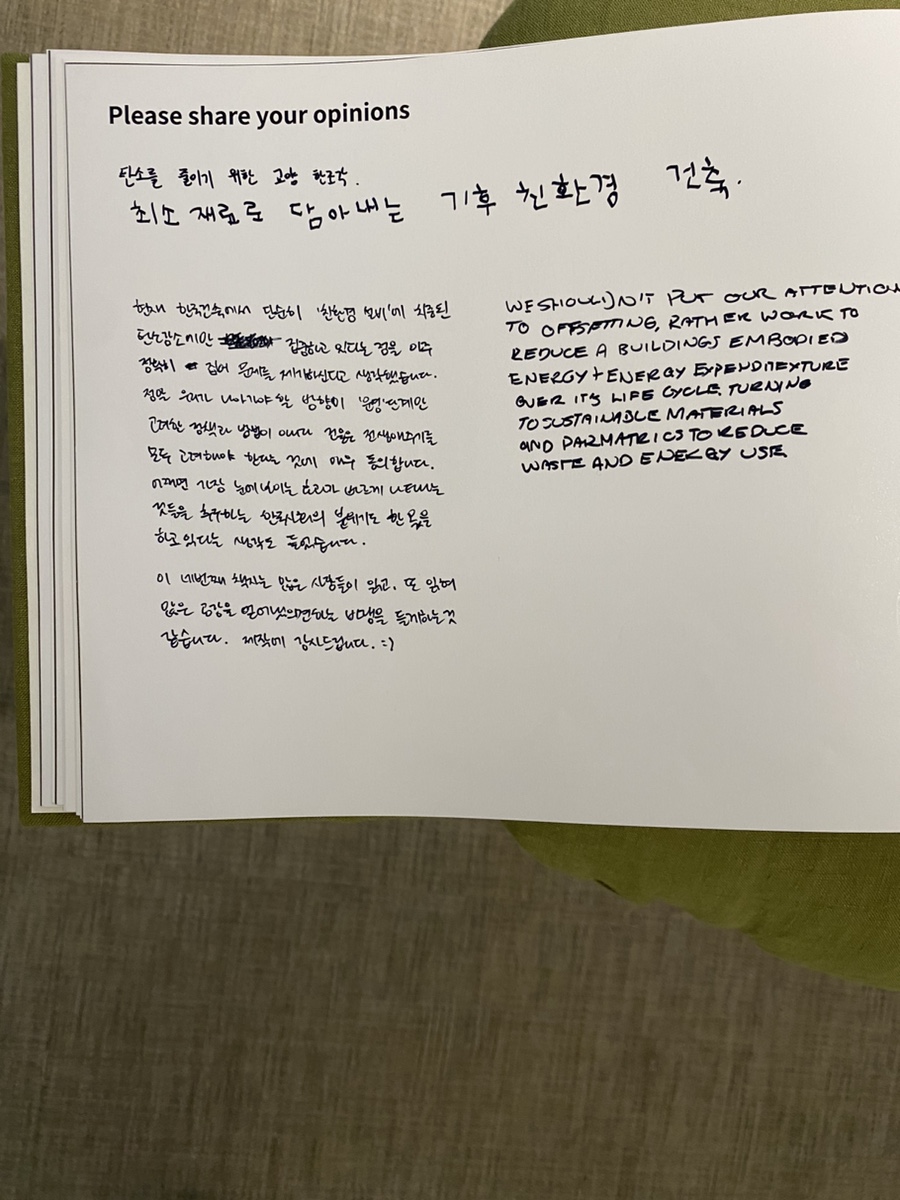 Please share your opinions
탄소를 줄이기 위한 고양 한조각.
최소 재료로 담아내는 기후 친환경 건축.
현재 한국건축에서 단순히 '친환경 설비'에 치중된
탄소감소에만 집중하고 있다는 점을 아주
정확히 집어 문제를 제기하신다고 생각했습니다.
정말 우리가 나아가야 할 방향이 '운영'단계만
고려한 정책과 방법이 아니라 건물은 전생애주기를
모두 고려해야 한다는 것에 매우 동의합니다.
어쩌면 가장 눈에 보이는 효과가 빠르게 나타나는
것들을 추구하는 한국사회의 분위기도 한 몫을
하고 있다는 생각도 들었습니다.
이 네번째 책자는 많은 사람들이 읽고, 또 읽혀
많은 공감을 얻어냈으면하는 바램을 들게하는것
같습니다. 제작에 감사드립니다. :)
WE SHOULDN'T PUT OUR ATTENTION
TO OFFSETTING, RATHER WORK TO
REDUCE A BUILDINGS EMBODIED
ENERGY + ENERGY EXPENDITEXTURE
OVER IT'S LIFE CYCLE. TURNING
TO SUSTAINABLE MATERIALS
AND PARMATRICS TO REDUCE
WASTE AND ENERGY USE